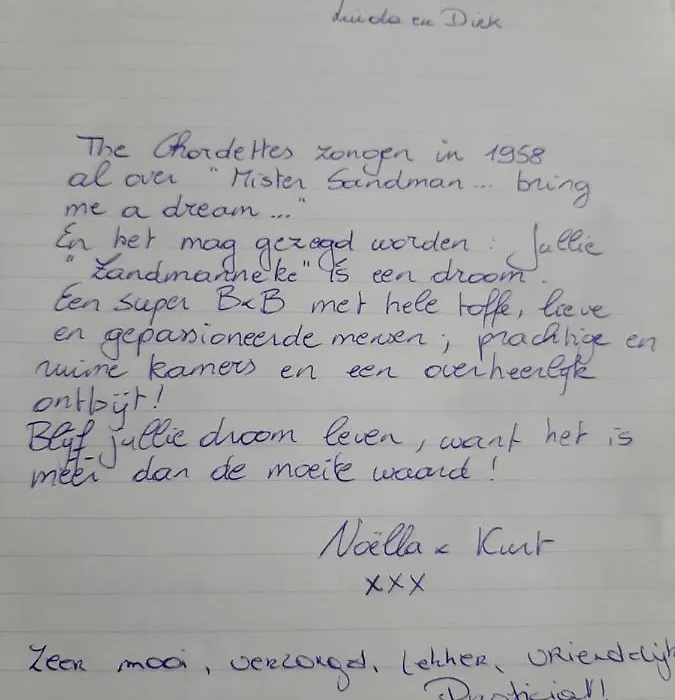 Linda en Dirk
The Chordettes zongen in 1958
al over "Mister Sandman... bring
me a dream..."
En het mag gezegd worden: Jullie
"Zandmanneke" is een droom.
Een super B&B met hele toffe, lieve
en gepassioneerde mensen; prachtige en
ruime kamers en een overheerlijk
ontbijt!
Blijf jullie droom leven, want het is
méér dan de moeite waard!
Noëlla & Kurt
xxx
Zeer mooi, verzorgd, lekker, vriendelijk